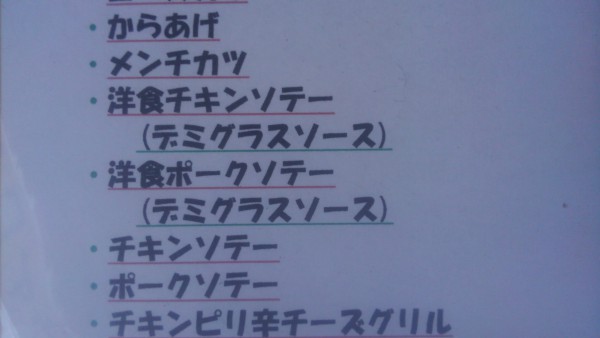 ・からあげ
・メンチカツ
・洋食チキンソテー
(デミグラスソース)
・洋食ポークソテー
(デミグラスソース)
・チキンソテー
・ポークソテー
・チキンピリ辛チーズグリル